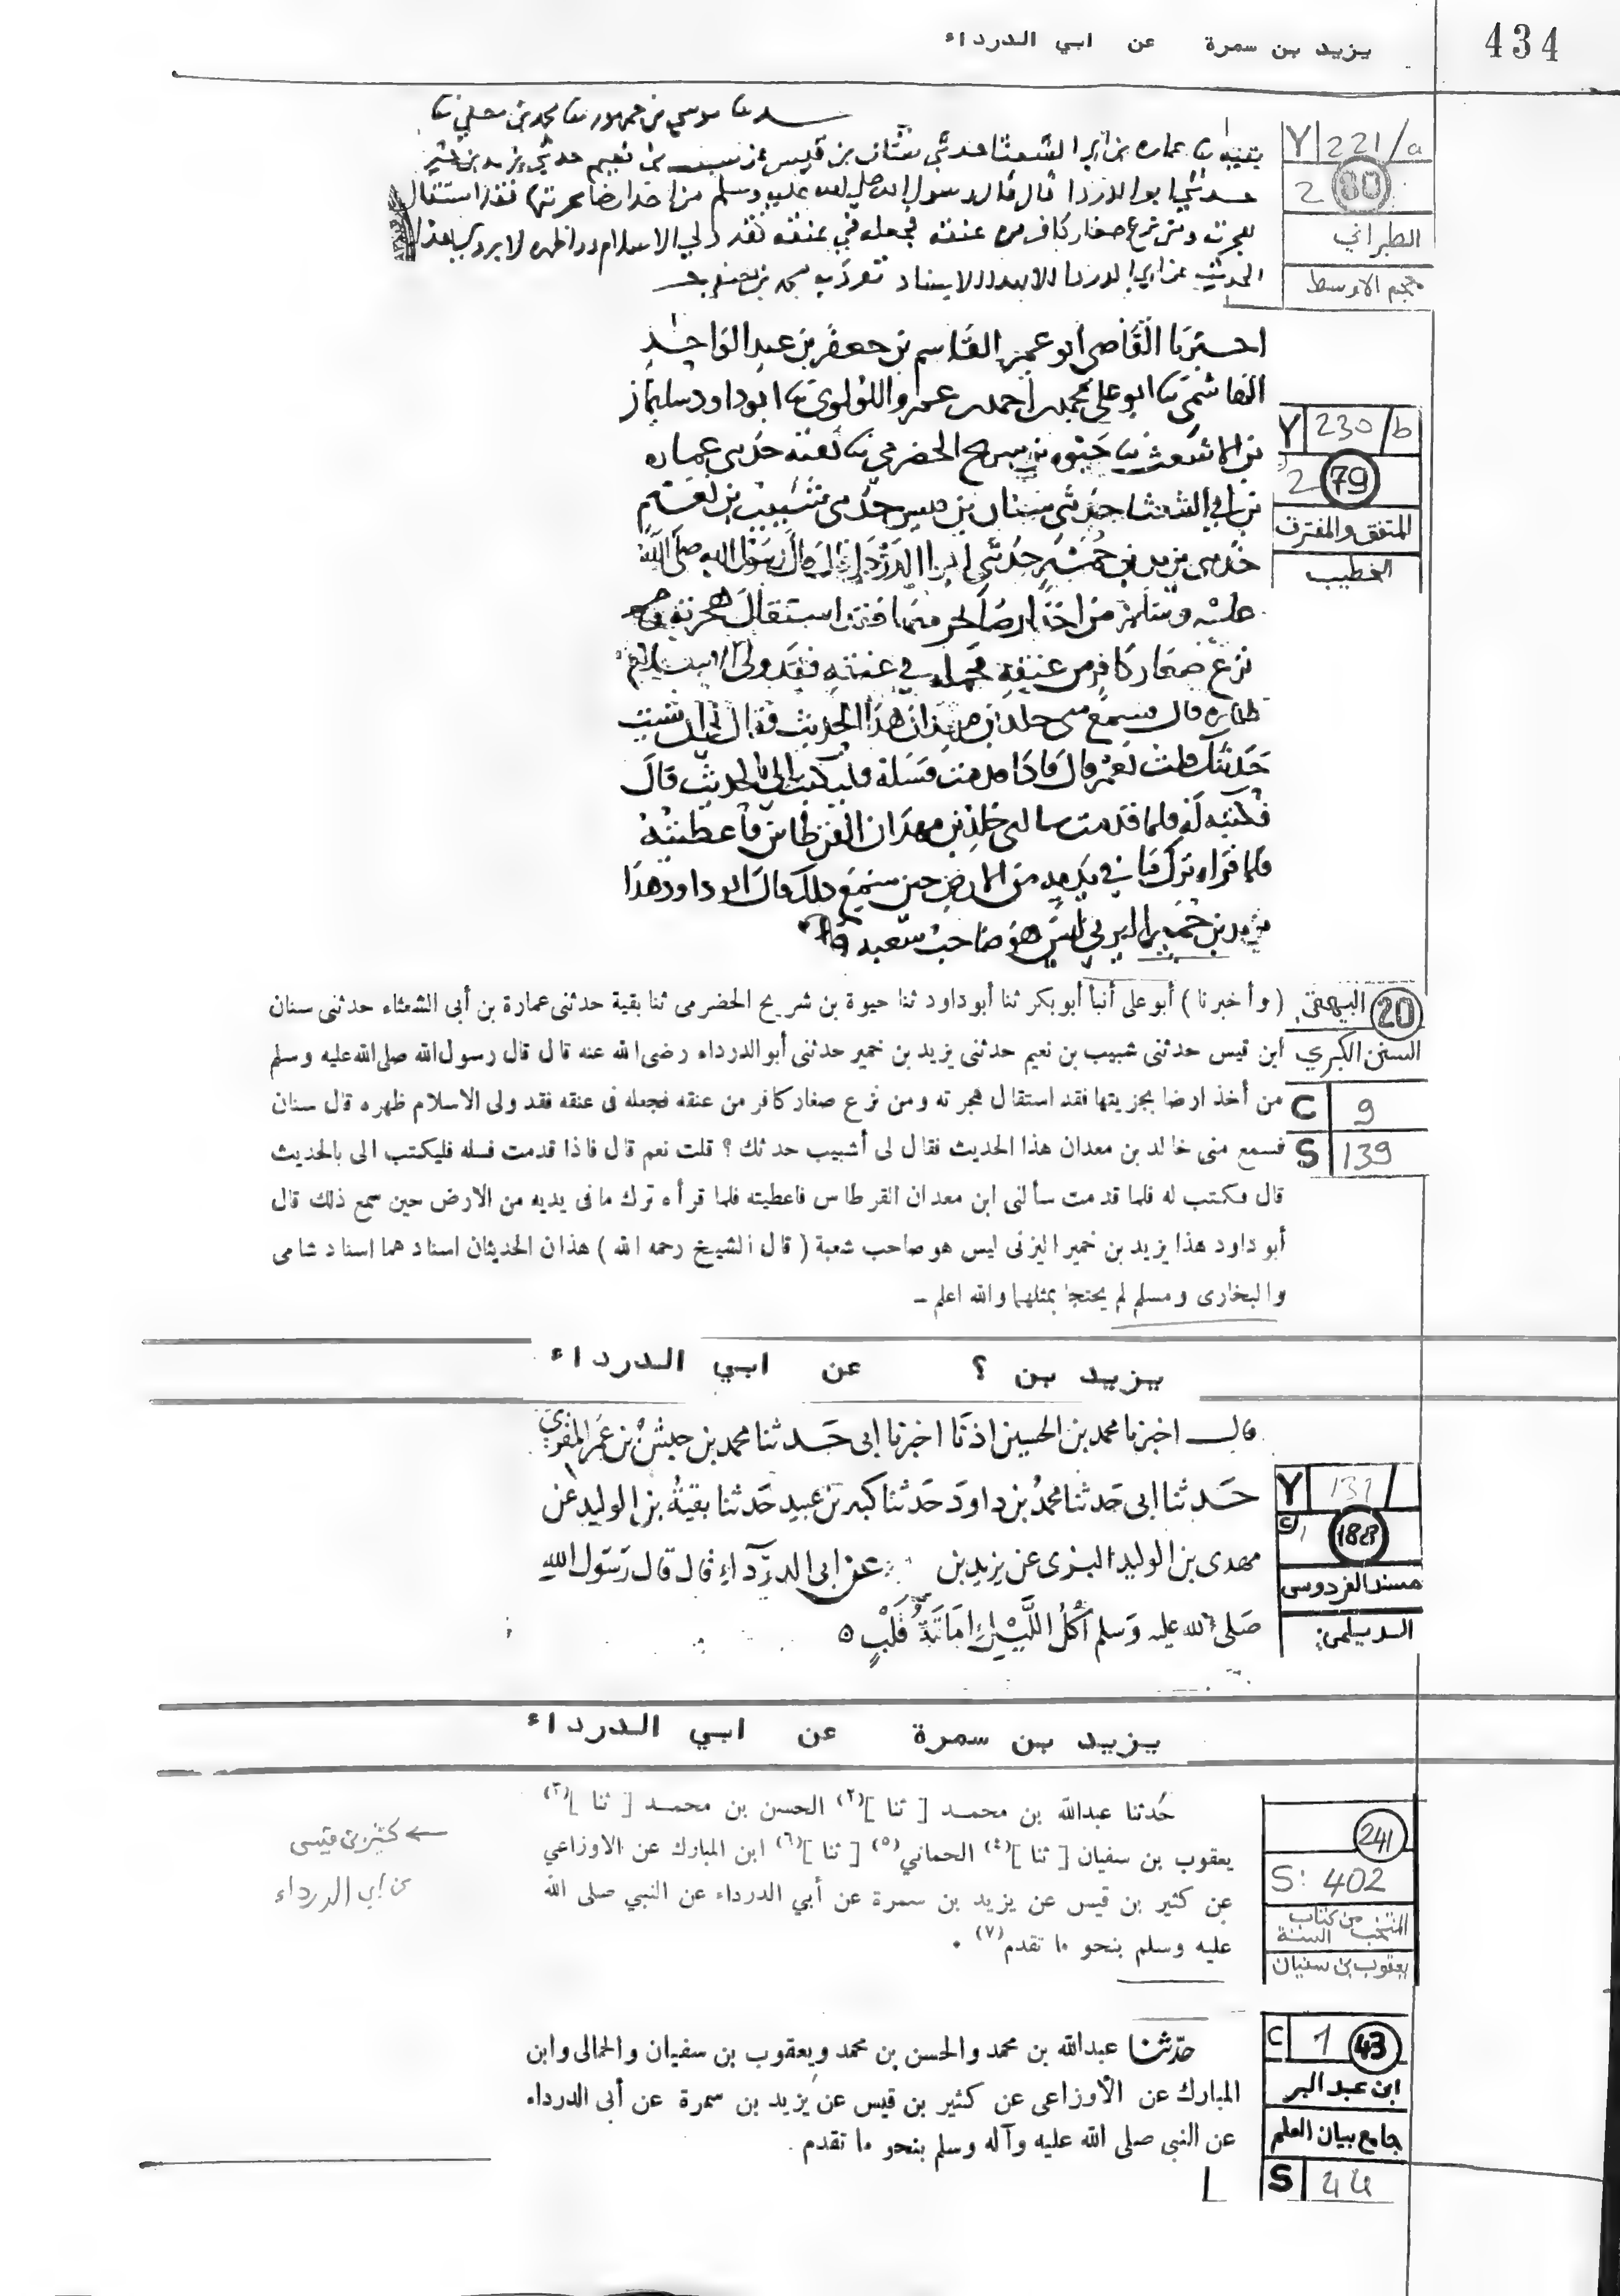 434
يزيد بن سمرة عن ابي الدرداء
حدثنا موسى بن جمهور نا محمد بن مصفى نا
بقية نا عمارة بن أبي الشعثا حدثني سنان بن قيس عن شبيب بن نعيم حدثني يزيد بن خمير
حدثني ابو الدردا قال قال رسول الله صلى الله عليه وسلم من اخذ ارضا بجزيتها فقد استقال
هجرته ومن نزع صغار كافر من عنقه فجعله في عنقه فقد ولى الاسلام ظهره لا يروى هذا
الحديث عن ابي الدردا الا بهذا الاسناد تفرد به
Y 221/a
2 80
الطبراني
معجم الاوسط
اخبرنا القاضي ابو عمر القاسم بن جعفر بن عبد الواحد
الهاشمي نا ابو علي محمد بن احمد بن عمرو اللولوي نا ابو داود سليمان
بن الاشعث نا حيوة بن شريح الحضرمي نا بقية حدثني عمارة
بن ابي الشعثا حدثني سنان بن قيس حدثني شبيب بن نعيم
حدثني يزيد بن خمير حدثني ابو الدردا قال قال رسول الله صلى الله
عليه وسلم من اخذ ارضا بجزيتها فقد استقال هجرته ومن
نزع صغار كافر من عنقه فجعله في عنقه فقد ولى الاسلام
ظهره قال فسمع مني خالد بن معدان هذا الحديث فقال لي اشبيب
حدثك قلت نعم قال فاذا قدمت فسله فليكتب الي بالحديث قال
فكتبه له فلما قدمت سالني خالد بن معدان القرطاس فاعطيته
فلما قراه ترك ما في يديه من الارض حين سمع ذلك قال ابو داود هذا
يزيد بن خمير اليزني ليس هو صاحب شعبة
Y 230/b
2 79
المتفق والمفترق
الخطيب
(وأخبرنا) أبو على أنبأ أبو بكر ثنا أبو داود ثنا حيوة بن شريح الحضرمى ثنا بقية حدثنى عمارة بن أبى الشعثاء حدثنى سنان
ابن قيس حدثنى شبيب بن نعيم حدثنى يزيد بن خمير حدثنى أبو الدرداء رضى الله عنه قال قال رسول الله صلى الله عليه وسلم
من أخذ ارضا بجزيتها فقد استقال هجرته ومن نزع صغار كافر من عنقه فجعله فى عنقه فقد ولى الاسلام ظهره قال سنان
فسمع منى خالد بن معدان هذا الحديث فقال لى أشبيب حدثك ؟ قلت نعم قال فاذا قدمت فسله فليكتب الى بالحديث
قال فكتب له فلما قدمت سألنى ابن معدان القرطاس فاعطيته فلما قرأه ترك ما فى يديه من الارض حين سمع ذلك قال
أبو داود هذا يزيد بن خمير اليزنى ليس هو صاحب شعبة (قال الشيخ رحمه الله) هذان الحديثان اسنادهما اسناد شامى
والبخارى ومسلم لم يحتجا بمثلهما والله اعلم -
20 البيهقي
السنن الكبري
C 9
S 139
يزيد بن ؟ عن ابي الدرداء
قال اخبرنا محمد بن الحسين اذنا اخبرنا ابى حدثنا محمد بن حبش بن عمر المقرئ
حدثنا ابى حدثنا محمد بن داود حدثنا كبير بن عبيد حدثنا بقية بن الوليد عن
مهدى بن الوليد اليزى عن يزيد بن عن ابى الدرداء قال قال رسول الله
صلى الله عليه وسلم أكل الليل امانة
Y 131/
188
مسند الفردوسى
الديلمى
يزيد بن سمرة عن ابي الدرداء
حدثنا عبدالله بن محمد [ ثنا ](٢) الحسن بن محمد [ ثنا ](٣)
يعقوب بن سفيان [ ثنا ](٤) الحماني(٥) [ ثنا ](٦) ابن المبارك عن الاوزاعي
عن كثير بن قيس عن يزيد بن سمرة عن أبي الدرداء عن النبي صلى الله
عليه وسلم بنحو ما تقدم(٧) .
← كثير بن قيس
عن أبي الدرداء
241
S: 402
المنتخب من كتاب السنة
يعقوب بن سفيان
حدّثنا عبدالله بن محمد والحسن بن محمد ويعقوب بن سفيان والحمالى وابن
المبارك عن الأوزاعى عن كثير بن قيس عن يزيد بن سمرة عن أبى الدرداء
عن النبى صلى الله عليه وآله وسلم بنحو ما تقدم .
C 1 43
ابن عبد البر
جامع بيان العلم
S 44